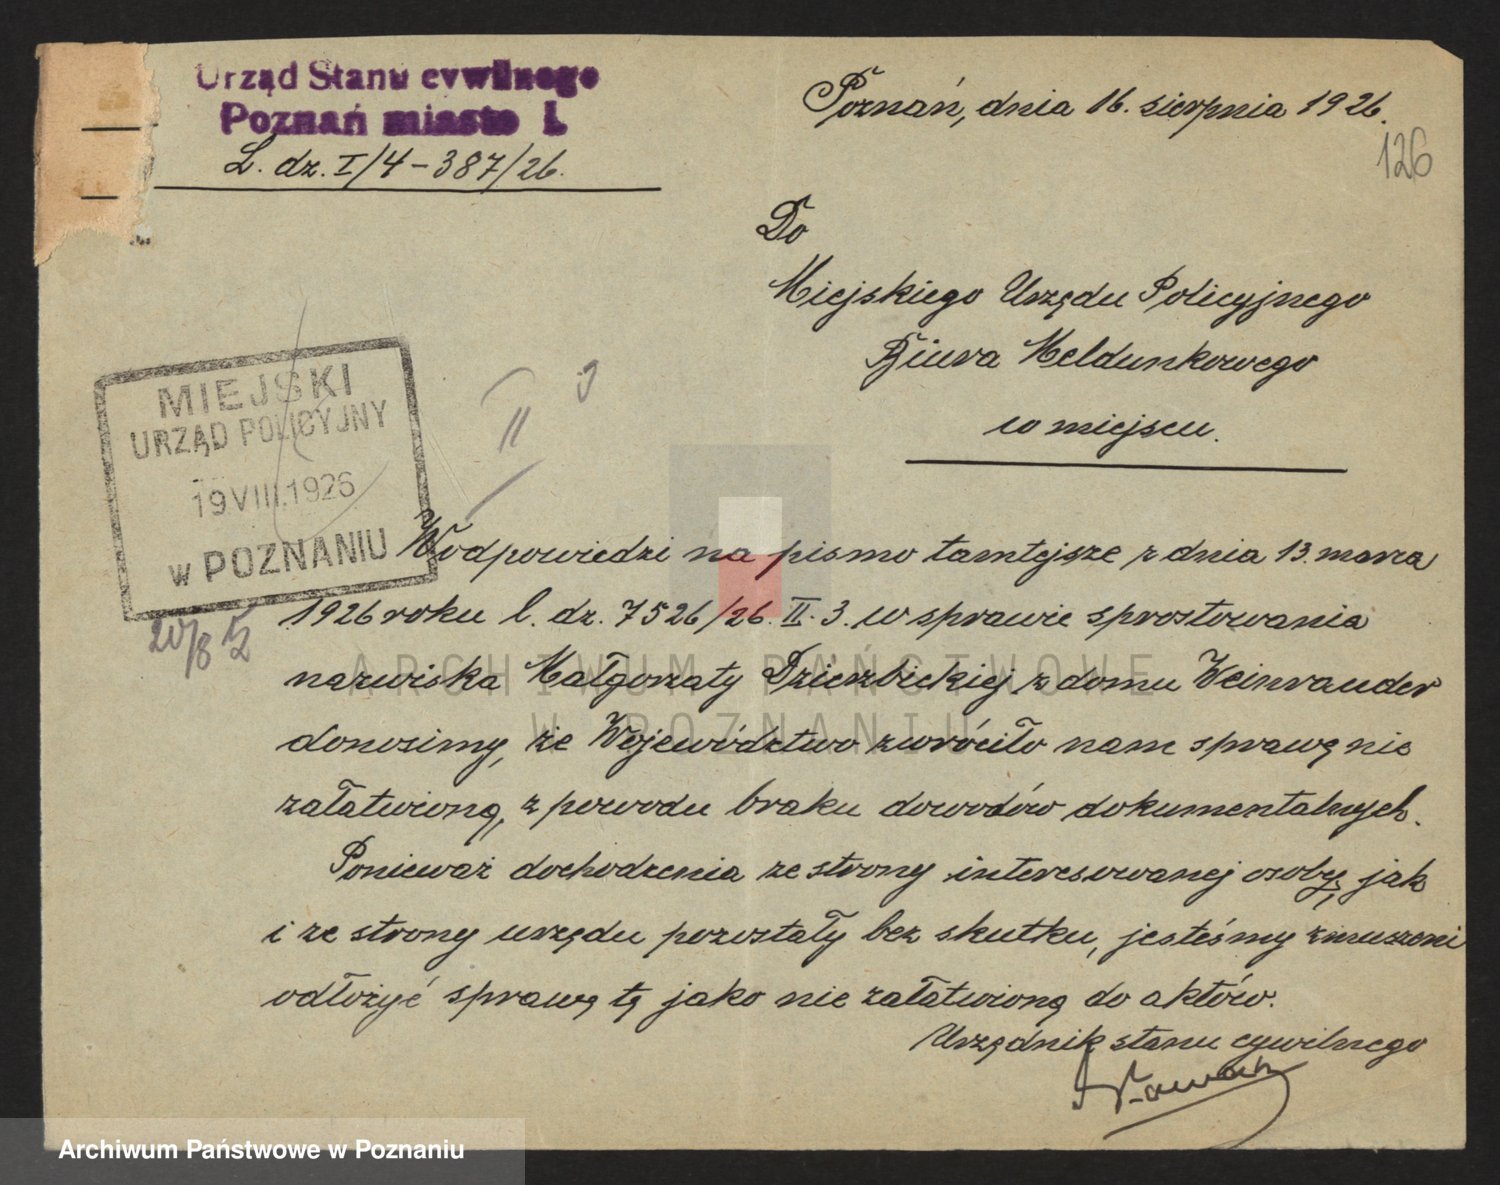 Urząd Stanu cywilnego
Poznań miasto I.
L. dz. I/4 – 387/26.
Poznań, dnia 16. sierpnia 1926.
126
Do
Miejskiego Urzędu Policyjnego
Biura Meldunkowego
w miejscu.
MIEJSKI
URZĄD POLICYJNY
19 VIII. 1926
w POZNANIU
II
20/8
W odpowiedzi na pismo tamtejsze z dnia 13. marca
1926 roku l. dz. 7526/26. II. 3. w sprawie sprostowania
nazwiska Małgorzaty Dzierzbickiej z domu Weinrauder
donosimy, że Województwo zwróciło nam sprawę nie
załatwioną, z powodu braku dowodów dokumentalnych.
Ponieważ dochodzenia ze strony interesowanej osoby, jak
i ze strony urzędu pozostały bez skutku, jesteśmy zmuszeni
odłożyć sprawę tę jako nie załatwioną do aktów.
Urzędnik stanu cywilnego
ARCHIWUM PAŃSTWOWE
W POZNANIU
Archiwum Państwowe w Poznaniu